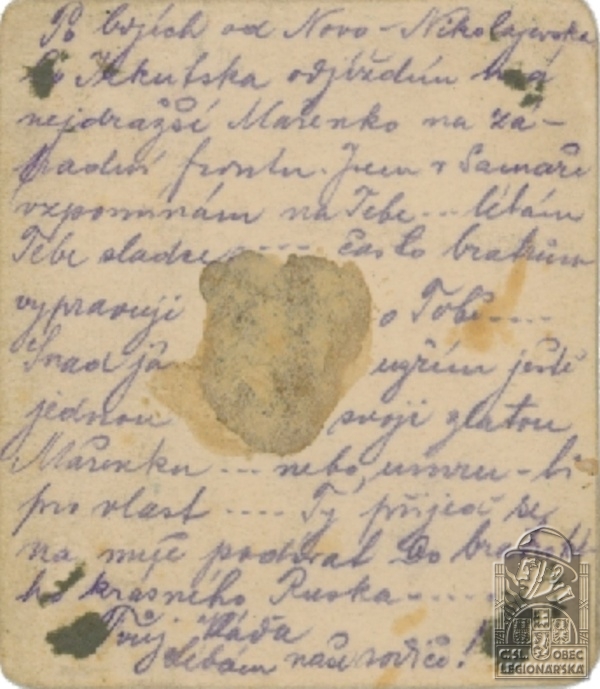 Po bojích od Novo-Nikolajevska
do Irkutska odjíždím má
nejdražší Mařenko na zá-
padní frontu. Jsem v Samaře
vzpomínám na Tebe... líbám
Tebe sladce .... často bratrům
vypravuji o Tobě ....
Snad já uzřím ještě
jednou svoji zlatou
Mařenku ... nebo, umru-li
pro vlast .... Ty přijeď se
na mně podívat do
ho krásného Ruska ....
Tvůj Váďa
Líbám naše rodiče!
ČSL. OBEC
LEGIONÁŘSKÁ